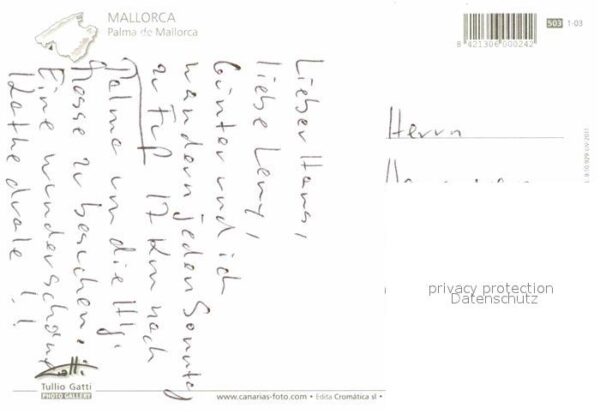 MALLORCA
Palma de Mallorca
8 421306 000242
503 1-03
Lieber Hans,
liebe Leny,
Günter und ich
wandern jeden Sonntag
zu Fuß 17 km nach
Palma um die Hl.
Messe zu besuchen.
Eine wunderschöne
Kathedrale!!
Herrn
privacy protection
Datenschutz
Tullio Gatti
PHOTO GALLERY
www.canarias-foto.com • Edita Cromática sl •